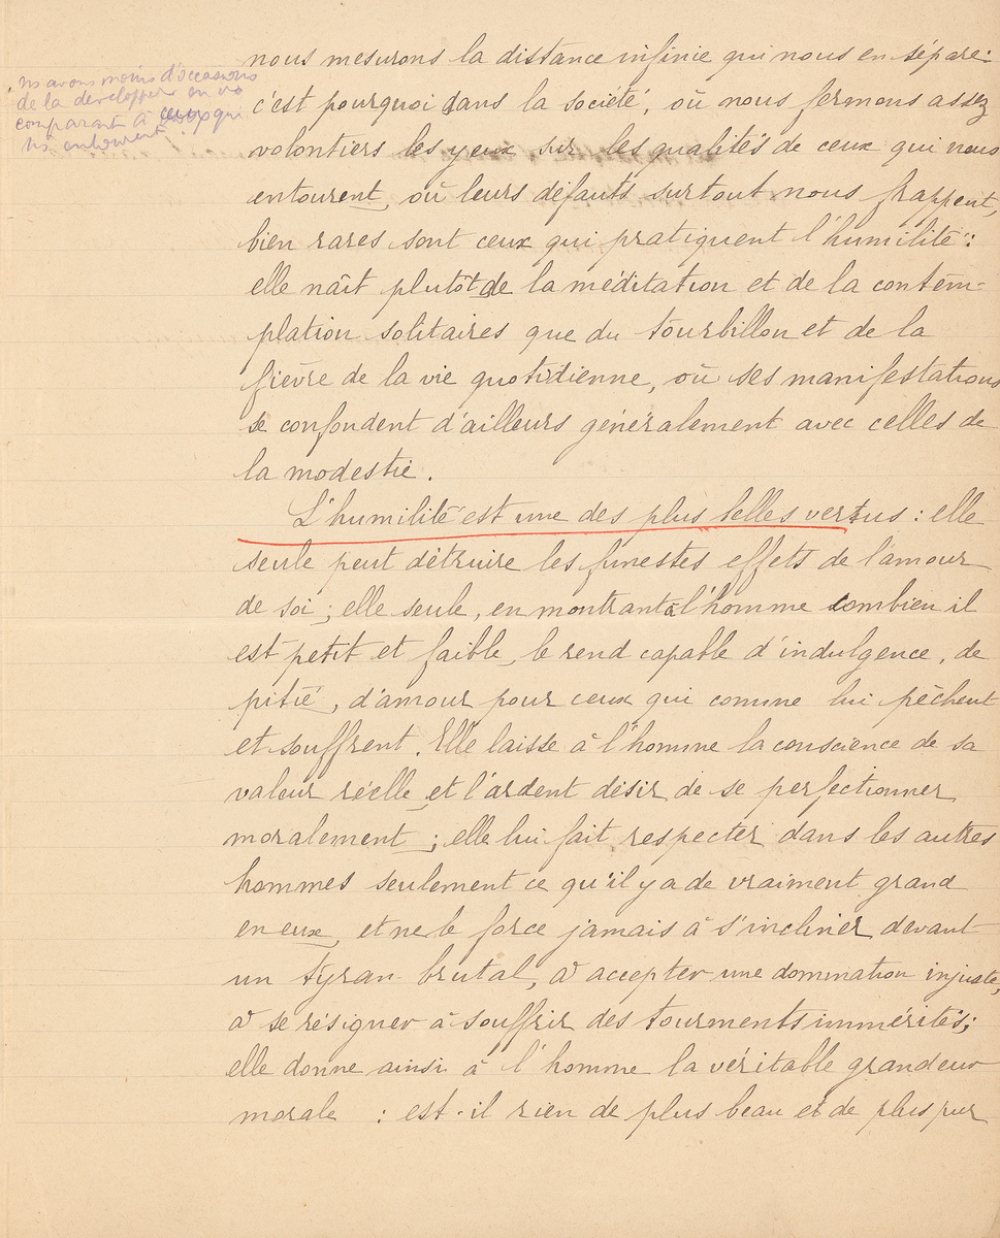 ns avons moins d'occasions
de la développer en ns
comparant à ceux qui
ns entourent.
nous mesurons la distance infinie qui nous en sépare :
c'est pourquoi dans la société, où nous fermons assez
volontiers les yeux sur les qualités de ceux qui nous
entourent, où leurs défauts surtout nous frappent,
bien rares sont ceux qui pratiquent l'humilité :
elle naît plutôt de la méditation et de la contem-
plation solitaires que du tourbillon et de la
fièvre de la vie quotidienne, où ses manifestations
se confondent d'ailleurs généralement avec celles de
la modestie.
L'humilité est une des plus belles vertus : elle
seule peut détruire les funestes effets de l'amour
de soi ; elle seule, en montrant à l'homme combien il
est petit et faible, le rend capable d'indulgence, de
pitié, d'amour pour ceux qui comme lui pèchent
et souffrent. Elle laisse à l'homme la conscience de sa
valeur réelle et l'ardent désir de se perfectionner
moralement ; elle lui fait respecter dans les autres
hommes seulement ce qu'il y a de vraiment grand
en eux, et ne le force jamais à s'incliner devant
un tyran brutal, à accepter une domination injuste,
à se résigner à souffrir des tourments immérités ;
elle donne ainsi à l'homme la véritable grandeur
morale : est-il rien de plus beau et de plus pur